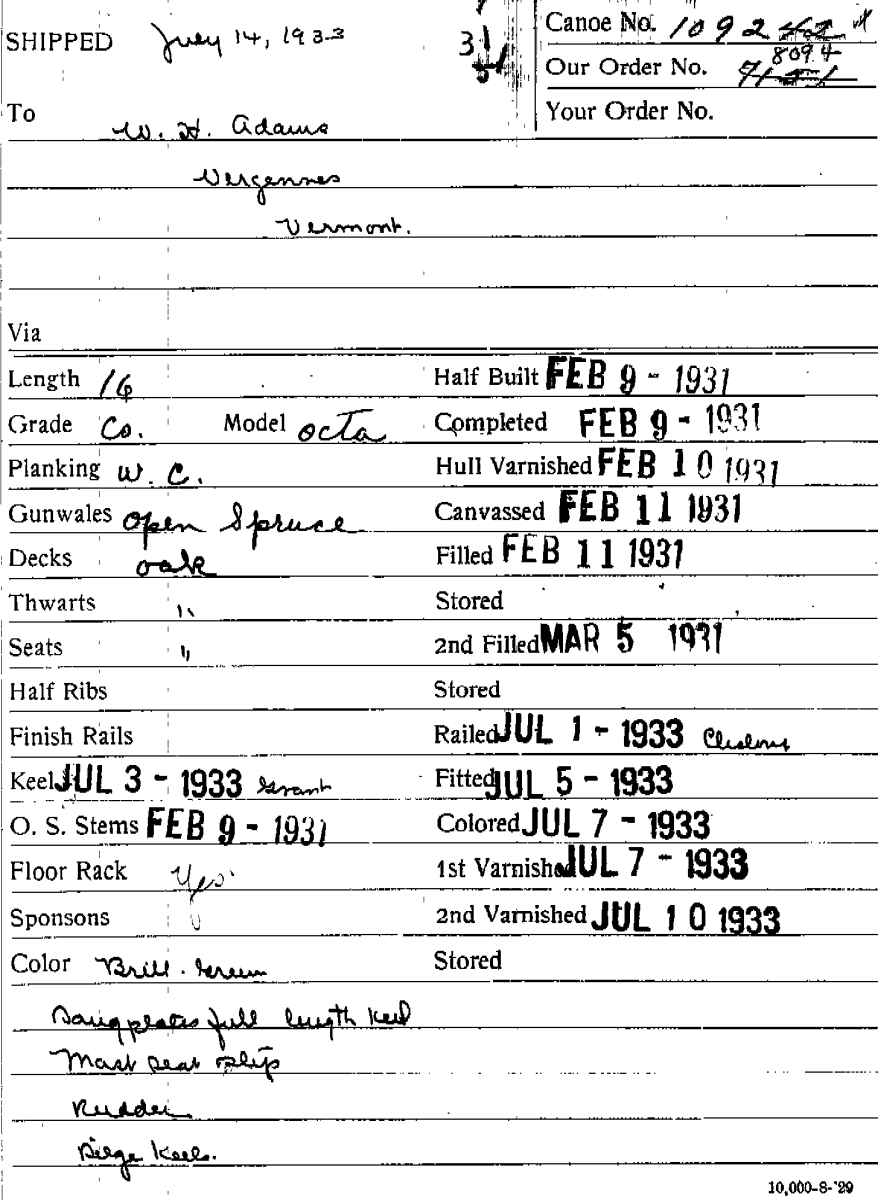 SHIPPED July 14, 1933 31 Canoe No. 10924
8094
Our Order No.
To Your Order No.
W. H. Adams
Vergennes
Vermont.
Via
Length 16 Half Built FEB 9 - 1931
Grade Co. Model octa Completed FEB 9 - 1931
Planking W. C. Hull Varnished FEB 10 1931
Gunwales open Spruce Canvassed FEB 11 1931
Decks oak Filled FEB 11 1931
Thwarts " Stored
Seats " 2nd Filled MAR 5 1931
Half Ribs Stored
Finish Rails Railed JUL 1 - 1933
Keel JUL 3 - 1933 Grant Fitted JUL 5 - 1933
O. S. Stems FEB 9 - 1931 Colored JUL 7 - 1933
Floor Rack Yes 1st Varnished JUL 7 - 1933
Sponsons 2nd Varnished JUL 10 1933
Color Brill. Green Stored
full length keel
Mast seat step
Rudder
Bilge Keels.
10,000-8-'29